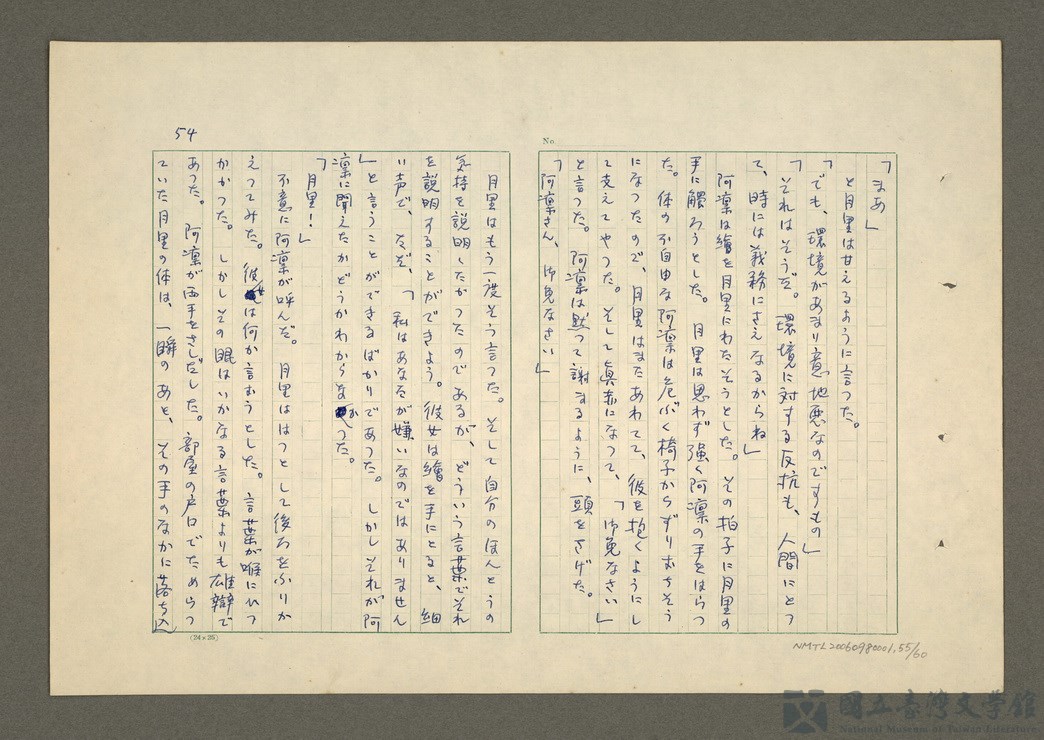 No.
「まあ」
と月里は甘えるように言つた。
「でも、環境があまり意地悪なのですもの」
「それはそうだ。環境に対する反抗も、人間にとつ
て、時には義務にさえなるからね」
阿凛は繪を月里にわたそうとした。その拍子に月里の
手に觸ろうとした。月里は思わず強く阿凛の手をはらつ
た。体の不自由な阿凛は危ぶく椅子からずりおちそう
になつたので、月里はまたあわてて、彼を抱くようにし
て支えてやつた。そして真赤になつて、「御免なさい」
と言つた。阿凛は黙つて謝まるように、頭をさげた。
「阿凛さん、御免なさい」
月里はもう一度そう言つた。そして自分のほんとうの
気持を説明したかつたのであるが、どういう言葉でそれ
を説明することができよう。彼女は繪を手にとると、細
い声で、ただ、「私はあなたが嫌いなのではありません
」と言うことができるばかりであつた。しかしそれが阿
凛に聞えたかどうかわからなかつた。
「月里！」
不意に阿凛が呼んだ。月里ははつとして後ろをふりか
えつてみた。彼女は何か言おうとした。言葉が喉にひつ
かかつた。しかしその眼はいかなる言葉よりも雄辯で
あつた。阿凛が両手をさしだした。部屋の戸口でためらつ
ていた月里の体は、一瞬のあと、その手のなかに落ち込
54
(24×25)
NMTL20060980001,55/60
國立臺灣文學館
National Museum of Taiwan Literature